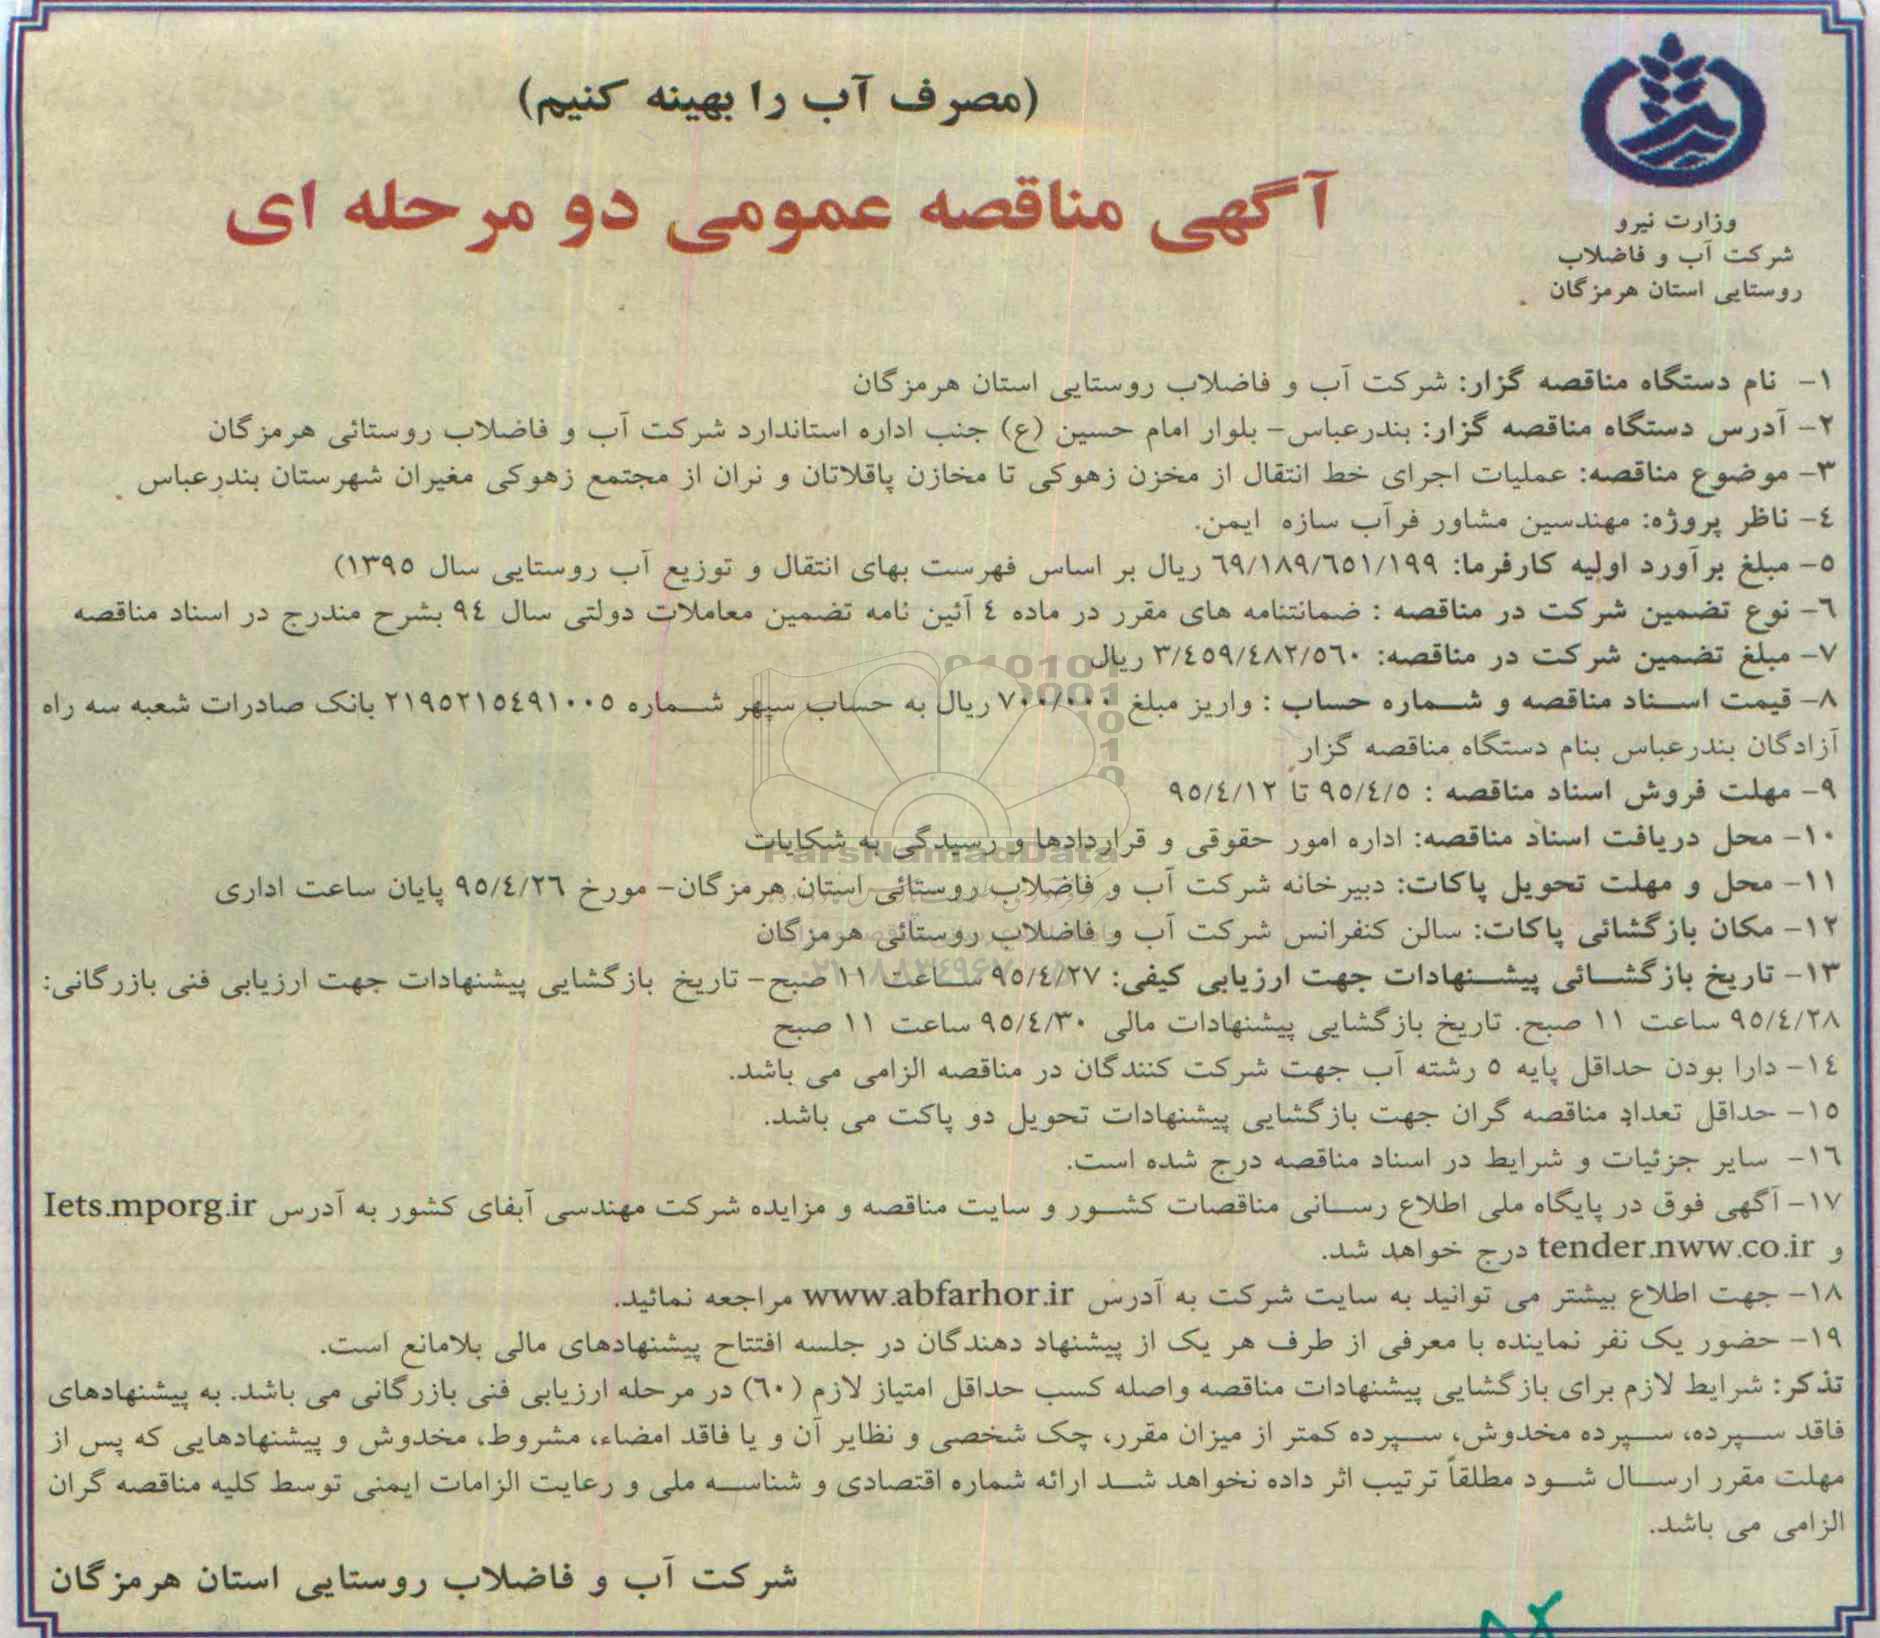 (مصرف آب را بهینه کنیم)
آگهی مناقصه عمومی دو مرحله ای
وزارت نیرو
شرکت آب و فاضلاب
روستایی استان هرمزگان
۱- نام دستگاه مناقصه گزار: شرکت آب و فاضلاب روستایی استان هرمزگان
۲- آدرس دستگاه مناقصه گزار: بندرعباس- بلوار امام حسین (ع) جنب اداره استاندارد شرکت آب و فاضلاب روستائی هرمزگان
۳- موضوع مناقصه: عملیات اجرای خط انتقال از مخزن زهوکی تا مخازن پاقلاتان و نران از مجتمع زهوکی مغیران شهرستان بندرعباس
٤- ناظر پروژه: مهندسین مشاور فرآب سازه ایمن.
٥- مبلغ برآورد اولیه کارفرما: ٦۹/۱۸۹/٦٥۱/۱۹۹ ریال بر اساس فهرست بهای انتقال و توزیع آب روستایی سال ۱۳۹٥)
٦- نوع تضمین شرکت در مناقصه : ضمانتنامه های مقرر در ماده ٤ آئین نامه تضمین معاملات دولتی سال ۹٤ بشرح مندرج در اسناد مناقصه
۷- مبلغ تضمین شرکت در مناقصه: ۳/٤٥۹/٤۸۲/٥٦۰ ریال
۸- قیمت اسناد مناقصه و شماره حساب : واریز مبلغ ۷۰۰/۰۰۰ ریال به حساب سپهر شماره ۲۱۹٥۲۱٥٤۹۱۰۰٥ بانک صادرات شعبه سه راه
آزادگان بندرعباس بنام دستگاه مناقصه گزار
۹- مهلت فروش اسناد مناقصه : ۹٥/٤/٥ تا ۹٥/٤/۱۲
۱۰- محل دریافت اسناد مناقصه: اداره امور حقوقی و قراردادها و رسیدگی به شکایات
۱۱- محل و مهلت تحویل پاکات: دبیرخانه شرکت آب و فاضلاب روستائی استان هرمزگان- مورخ ۹٥/٤/۲٦ پایان ساعت اداری
۱۲- مکان بازگشائی پاکات: سالن کنفرانس شرکت آب و فاضلاب روستائی هرمزگان
۱۳- تاریخ بازگشائی پیشنهادات جهت ارزیابی کیفی: ۹٥/٤/۲۷ ساعت ۱۱ صبح- تاریخ بازگشایی پیشنهادات جهت ارزیابی فنی بازرگانی:
۹٥/٤/۲۸ ساعت ۱۱ صبح. تاریخ بازگشایی پیشنهادات مالی ۹٥/٤/۳۰ ساعت ۱۱ صبح
۱٤- دارا بودن حداقل پایه ٥ رشته آب جهت شرکت کنندگان در مناقصه الزامی می باشد.
۱٥- حداقل تعداد مناقصه گران جهت بازگشایی پیشنهادات تحویل دو پاکت می باشد.
۱٦- سایر جزئیات و شرایط در اسناد مناقصه درج شده است.
۱۷- آگهی فوق در پایگاه ملی اطلاع رسانی مناقصات کشور و سایت مناقصه و مزایده شرکت مهندسی آبفای کشور به آدرس Iets.mporg.ir
و tender.nww.co.ir درج خواهد شد.
۱۸- جهت اطلاع بیشتر می توانید به سایت شرکت به آدرس www.abfarhor.ir مراجعه نمائید.
۱۹- حضور یک نفر نماینده با معرفی از طرف هر یک از پیشنهاد دهندگان در جلسه افتتاح پیشنهادهای مالی بلامانع است.
تذکر: شرایط لازم برای بازگشایی پیشنهادات مناقصه واصله کسب حداقل امتیاز لازم (٦۰) در مرحله ارزیابی فنی بازرگانی می باشد. به پیشنهادهای
فاقد سپرده، سپرده مخدوش، سپرده کمتر از میزان مقرر، چک شخصی و نظایر آن و یا فاقد امضاء، مشروط، مخدوش و پیشنهادهایی که پس از
مهلت مقرر ارسال شود مطلقاً ترتیب اثر داده نخواهد شد ارائه شماره اقتصادی و شناسه ملی و رعایت الزامات ایمنی توسط کلیه مناقصه گران
الزامی می باشد.
شرکت آب و فاضلاب روستایی استان هرمزگان
ParsNamadData